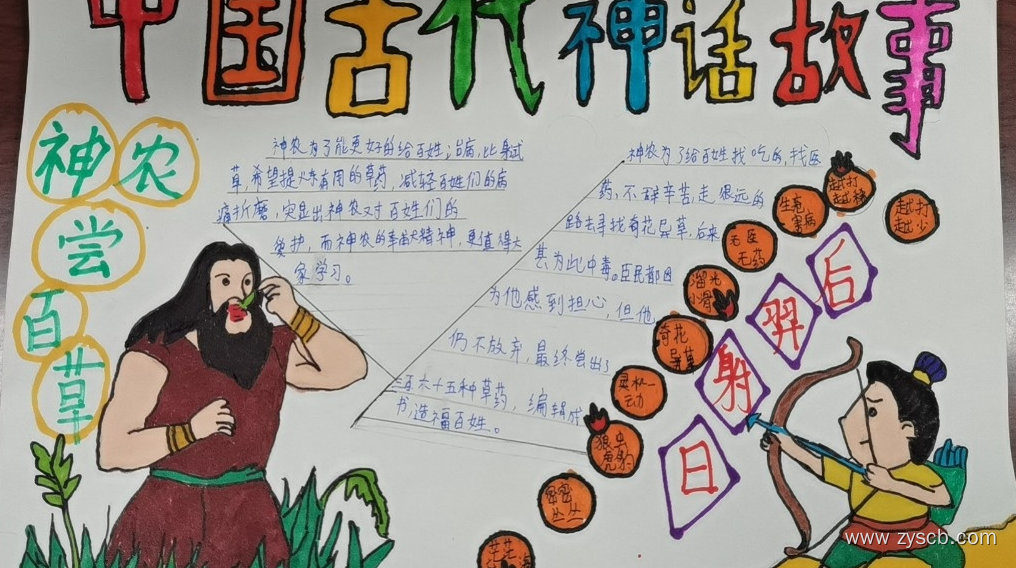 中国古代神话故事
神农
尝
百
草
神农为了能更好的给百姓治病,比身试
草,希望提炼有用的草药,减轻百姓们的病
痛折磨,突显出神农对百姓们的
爱护,而神农的奉献精神,更值得大
家学习。
神农为了给百姓找吃的,找医
药,不辞辛苦,走很远的
路去寻找奇花异草,后来
甚为此中毒。臣民都因
为他感到担心,但他
仍不放弃,最终尝出了
三百六十五种草药,编辑成
书,造福百姓。
越打
越少
生疮
害病
无医
无药
溜光
小滑
奇花
异草
灵机一
动
狼虫
虎豹
密密
丛丛
后
羿
射
日
www.zyscb.com